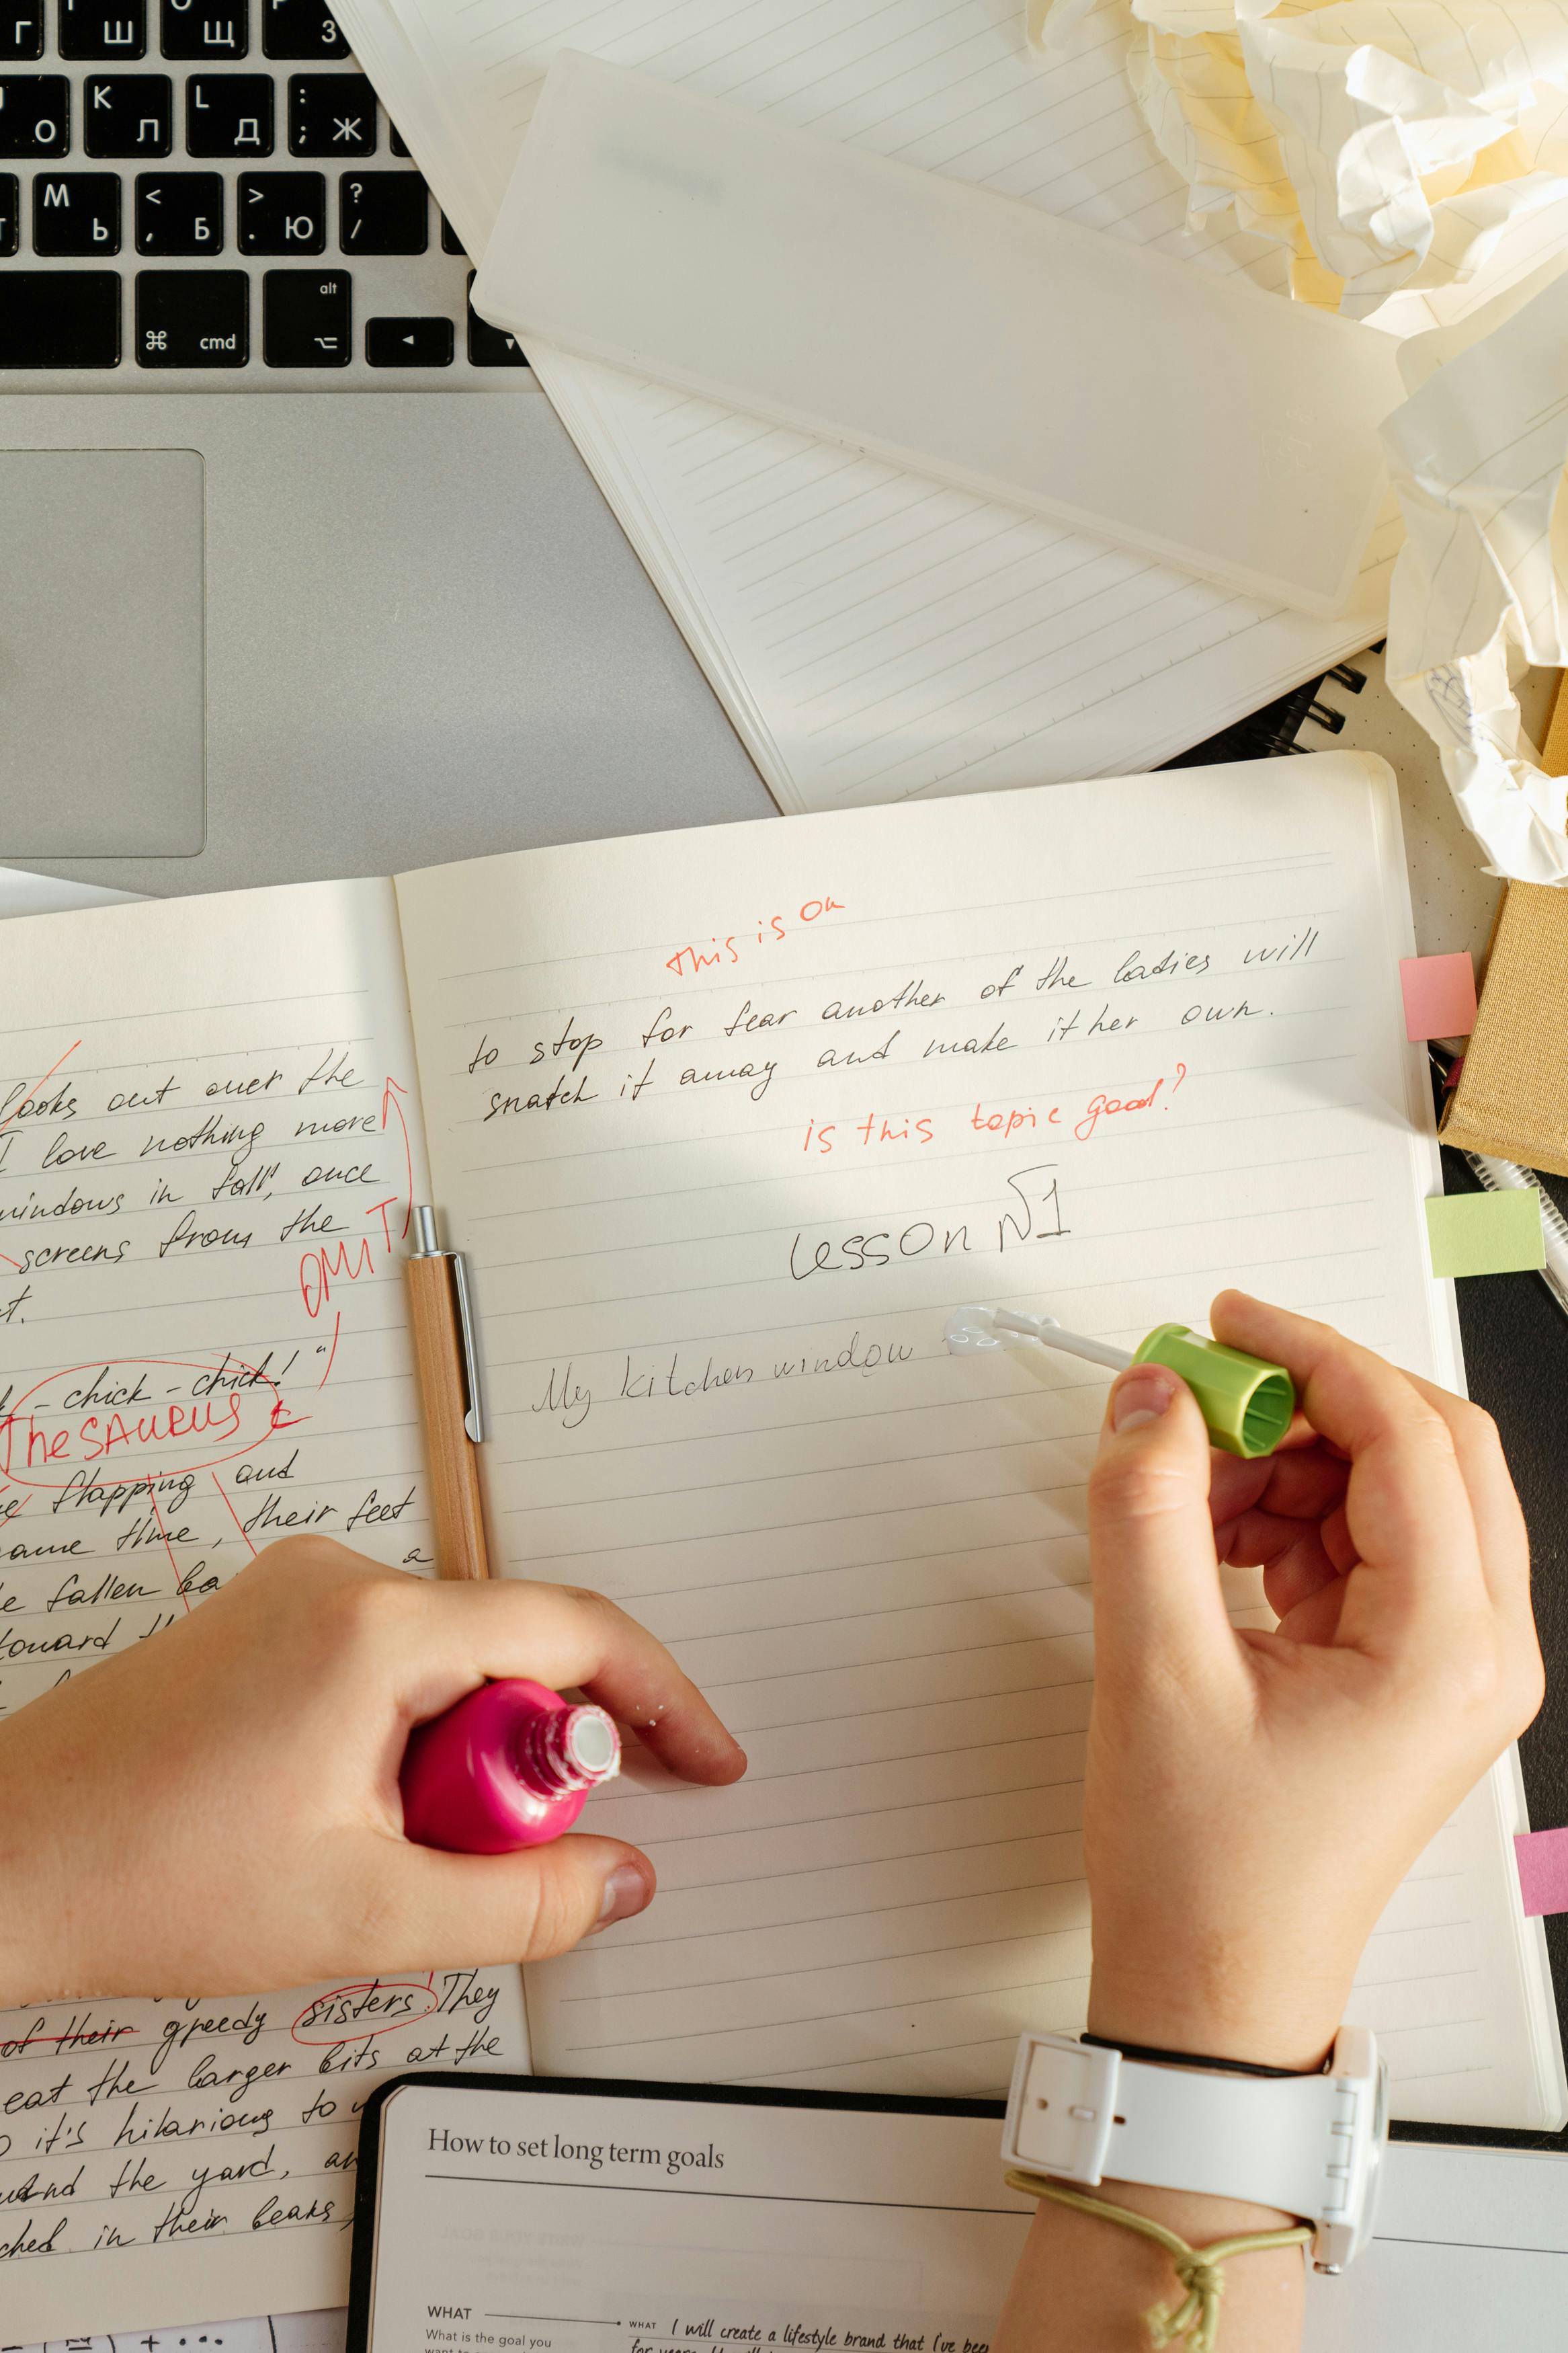 Г Ш Щ З
О K Л L Д : ; Ж
М Ь < , Б > . Ю ? /
⌘ cmd alt ⌥ ◄ ▼
looks out over the
I love nothing more
windows in fall, once
screens from the
OMIT
chick - chick! "
TheSAURUS
flapping and
same time, their feet
a
fallen
toward
of their greedy sisters. They
eat the larger bits at the
it's hilarious to
the yard,
in their beaks,
this is ok
to stop for fear another of the ladies will
snatch it away and make it her own.
is this topic good?
Lesson №1
My kitchen window
How to set long term goals
WHAT
What is the goal you
WHAT I will create a lifestyle brand that I've been